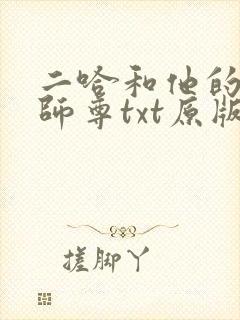 二哈和他的
師尊txt原版
搓脚丫